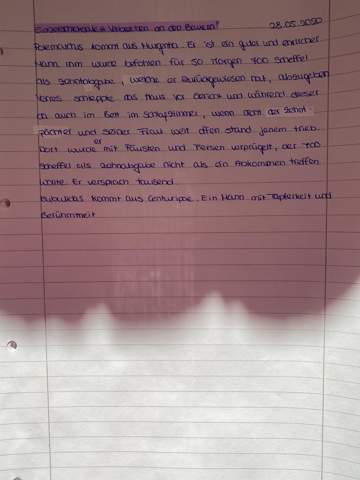 Verbrechen an den Bauern! 28.05.2020
Polemarchus kommt aus Murgentia. Er ist ein guter und ehrlicher
Mann. Ihm wurde befohlen für 50 Morgen 700 Scheffel
als Sachabgabe, welche er zurückgewiesen hat, abzugeben
Verres schleppte das Haus vor Gericht und während dieser
ja auch im Bett im Schlafzimmer, wenn nicht der Schat
pächter und seiner Frau weit offen stand jenem trieb.
Dort wurde er mit Fäusten und Fersen verprügelt, der 700
Scheffel als Sachabgabe nicht als ein Abkommen treffen
wollte. Er versprach tausend.
Eubulidas kommt aus Centuripae. Ein Mann mit Tapferkeit und
Berühmtheit